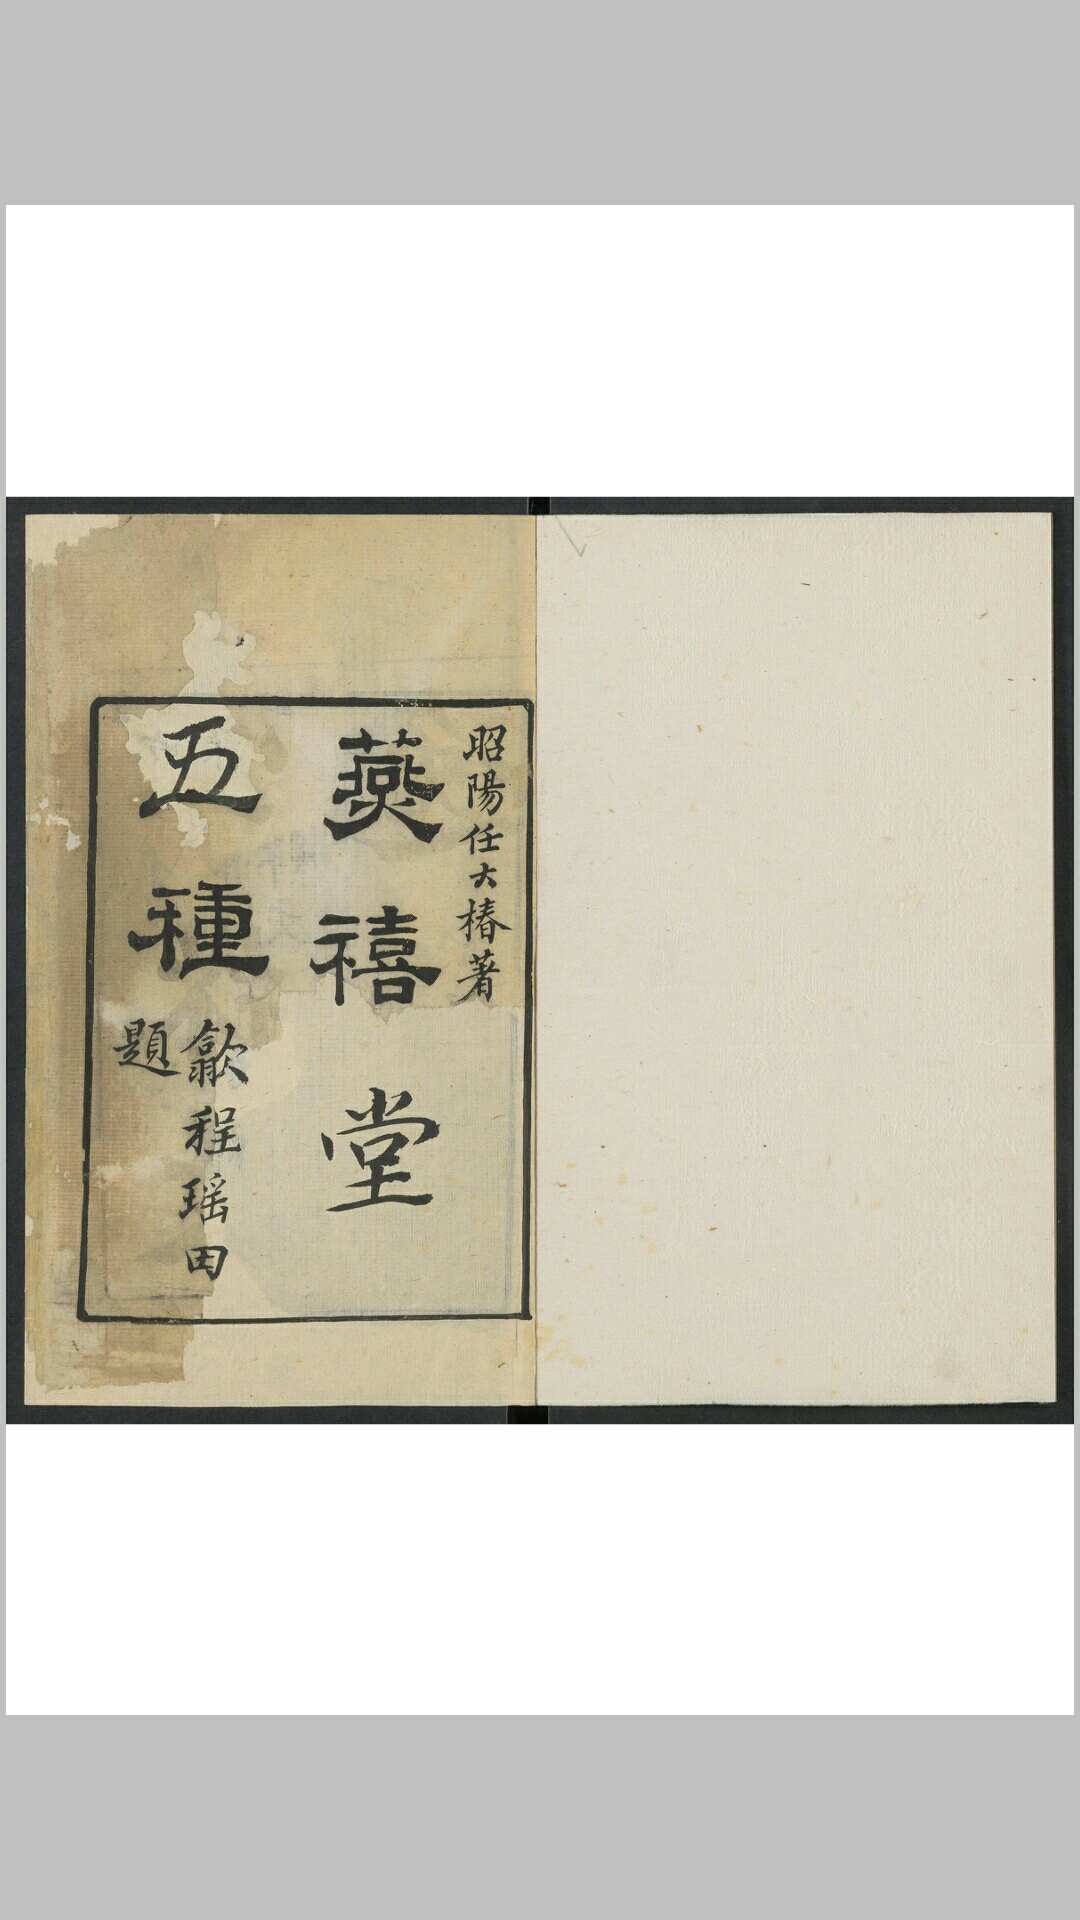 昭陽任大椿著
燕禧堂
五種
歙程瑤田
題